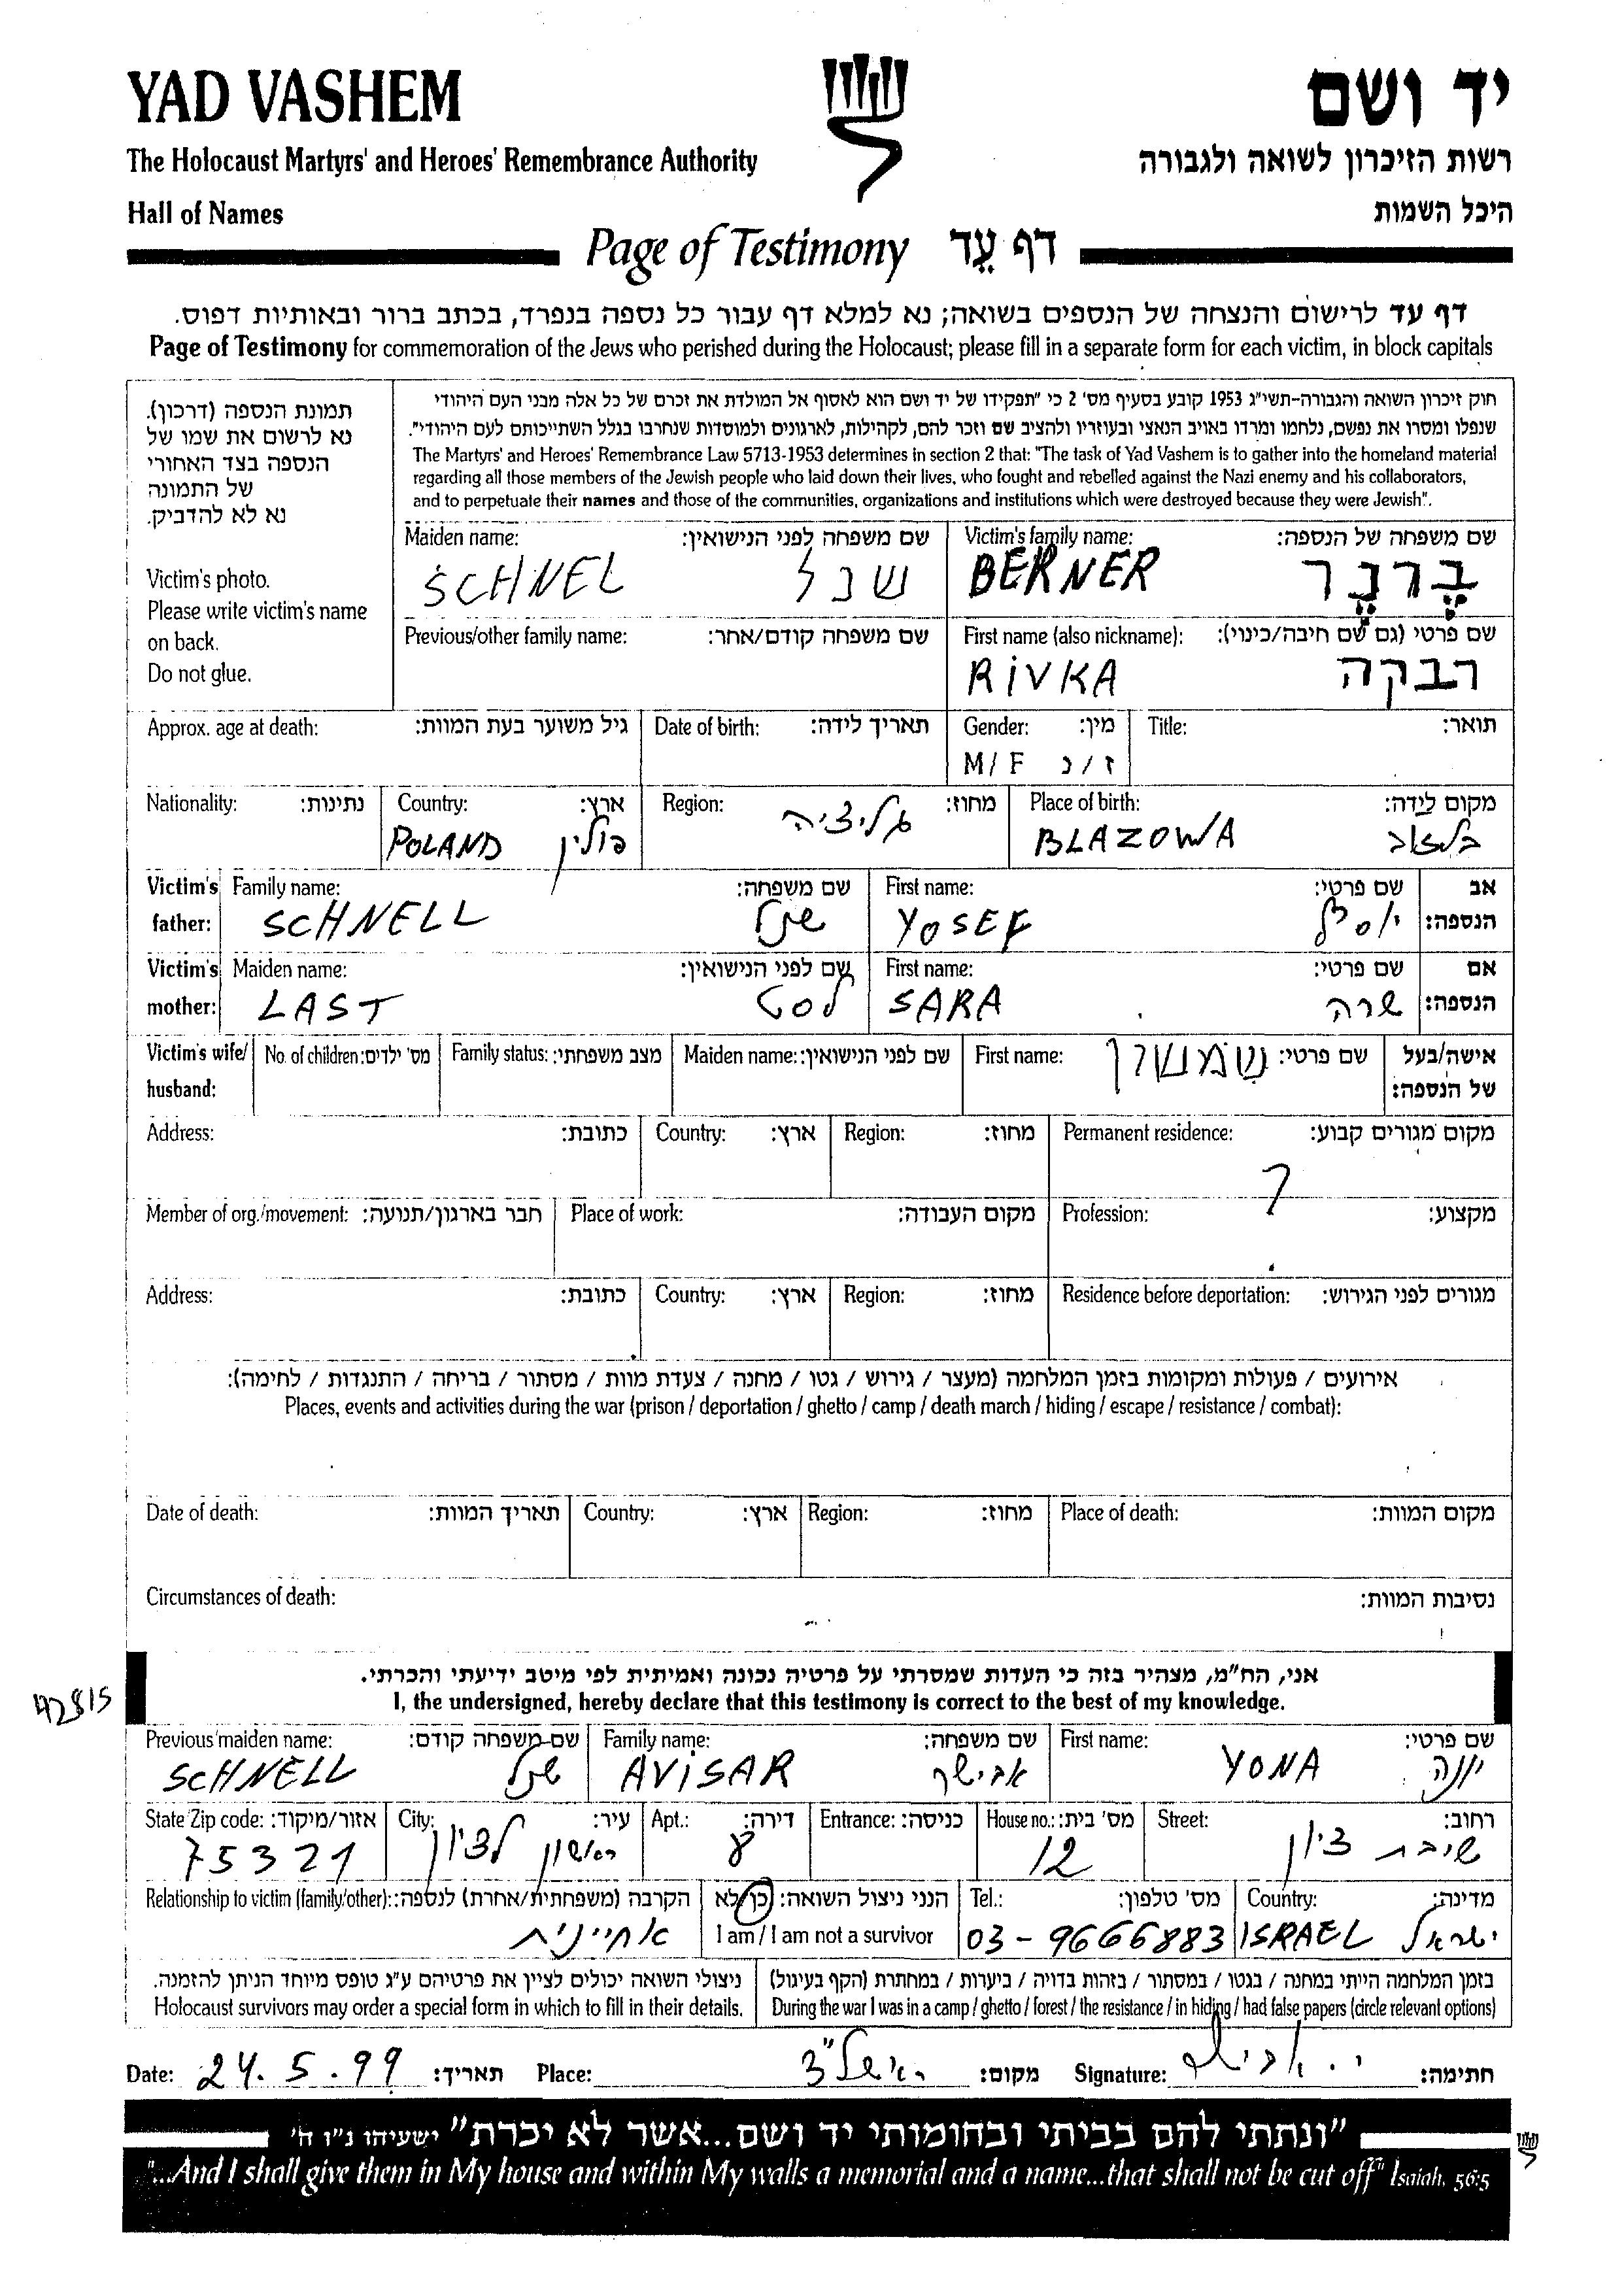 YAD VASHEM יד ושם
The Holocaust Martyrs' and Heroes' Remembrance Authority רשות הזיכרון לשואה ולגבורה
Hall of Names היכל השמות
Page of Testimony דף עֵד
דף עד לרישום והנצחה של הנספים בשואה; נא למלא דף עבור כל נספה בנפרד, בכתב ברור ובאותיות דפוס.
Page of Testimony for commemoration of the Jews who perished during the Holocaust; please fill in a separate form for each victim, in block capitals
תמונת הנספה (דרכון).
נא לרשום את שמו של
הנספה בצד האחורי
של התמונה
נא לא להדביק.
Victim's photo.
Please write victim's name
on back.
Do not glue.
חוק זיכרון השואה והגבורה-תשי"ג 1953 קובע בסעיף מס' 2 כי "תפקידו של יד ושם הוא לאסוף אל המולדת את זכרם של כל אלה מבני העם היהודי
שנפלו ומסרו את נפשם, נלחמו ומרדו באויב הנאצי ובעוזריו ולהציב שם וזכר להם, לקהילות, לארגונים ולמוסדות שנחרבו בגלל השתייכותם לעם היהודי".
The Martyrs' and Heroes' Remembrance Law 5713-1953 determines in section 2 that: "The task of Yad Vashem is to gather into the homeland material
regarding all those members of the Jewish people who laid down their lives, who fought and rebelled against the Nazi enemy and his collaborators,
and to perpetuate their names and those of the communities, organizations and institutions which were destroyed because they were Jewish".
Maiden name: שם משפחה לפני הנישואין: Victim's family name: שם משפחה של הנספה:
SCHNEL שנל BERNER בֶרנֶר
Previous/other family name: שם משפחה קודם/אחר: First name (also nickname): שם פרטי (גם שם חיבה/כינוי):
RiVKA רבקה
Approx. age at death: גיל משוער בעת המוות: Date of birth: תאריך לידה: Gender: מין: Title: תואר:
M/F ז/נ
Nationality: נתינות: Country: ארץ: Region: מחוז: Place of birth: מקום לידה:
POLAND פולין גליציה BLAZOWA בלאזוב
Victim's Family name: שם משפחה: First name: שם פרטי: אב
father: SCHNELL שנל YOSEF יוסף הנספה:
Victim's Maiden name: שם לפני הנישואין: First name: שם פרטי: אם
mother: LAST לסט SARA שרה הנספה:
Victim's wife/ No. of children: מס' ילדים: Family status: מצב משפחתי: Maiden name: שם לפני הנישואין: First name: שם פרטי: אישה/בעל
husband: שמשון של הנספה:
Address: כתובת: Country: ארץ: Region: מחוז: Permanent residence: מקום מגורים קבוע:
?
Member of org./movement: חבר בארגון/תנועה: Place of work: מקום העבודה: Profession: מקצוע:
Address: כתובת: Country: ארץ: Region: מחוז: Residence before deportation: מגורים לפני הגירוש:
אירועים / פעולות ומקומות בזמן המלחמה (מעצר / גירוש / גטו / מחנה / צעדת מוות / מסתור / בריחה / התנגדות / לחימה):
Places, events and activities during the war (prison / deportation / ghetto / camp / death march / hiding / escape / resistance / combat):
Date of death: תאריך המוות: Country: ארץ: Region: מחוז: Place of death: מקום המוות:
Circumstances of death: נסיבות המוות:
אני, הח"מ, מצהיר בזה כי העדות שמסרתי על פרטיה נכונה ואמיתית לפי מיטב ידיעתי והכרתי.
I, the undersigned, hereby declare that this testimony is correct to the best of my knowledge.
42815
Previous/maiden name: שם משפחה קודם: Family name: שם משפחה: First name: שם פרטי:
SCHNELL שנל AViSAR אבישר YONA יונה
State/Zip code: אזור/מיקוד: City: עיר: Apt.: דירה: Entrance: כניסה: House no.: מס' בית: Street: רחוב:
75321 ראשון לציון 8 12 שיבת ציון
Relationship to victim (family/other): הקרבה (משפחתית/אחרת) לנספה: הנני ניצול השואה: כן/לא Tel.: מס' טלפון: Country: מדינה:
אחיינית I am / I am not a survivor 03-9666883 ISRAEL ישראל
ניצולי השואה יכולים לציין את פרטיהם ע"ג טופס מיוחד הניתן להזמנה. בזמן המלחמה הייתי במחנה / בגטו / במסתור / בזהות בדויה / ביערות / במחתרת (הקף בעיגול)
Holocaust survivors may order a special form in which to fill in their details. During the war I was in a camp / ghetto / forest / the resistance / in hiding / had false papers (circle relevant options)
Date: 24.5.99 תאריך: Place: ראשל"צ מקום: Signature: חתימה:
"ונתתי להם בביתי ובחומותי יד ושם...אשר לא יכרת" ישעיהו נ"ו ה'
"...And I shall give them in My house and within My walls a memorial and a name...that shall not be cut off" Isaiah, 56:5